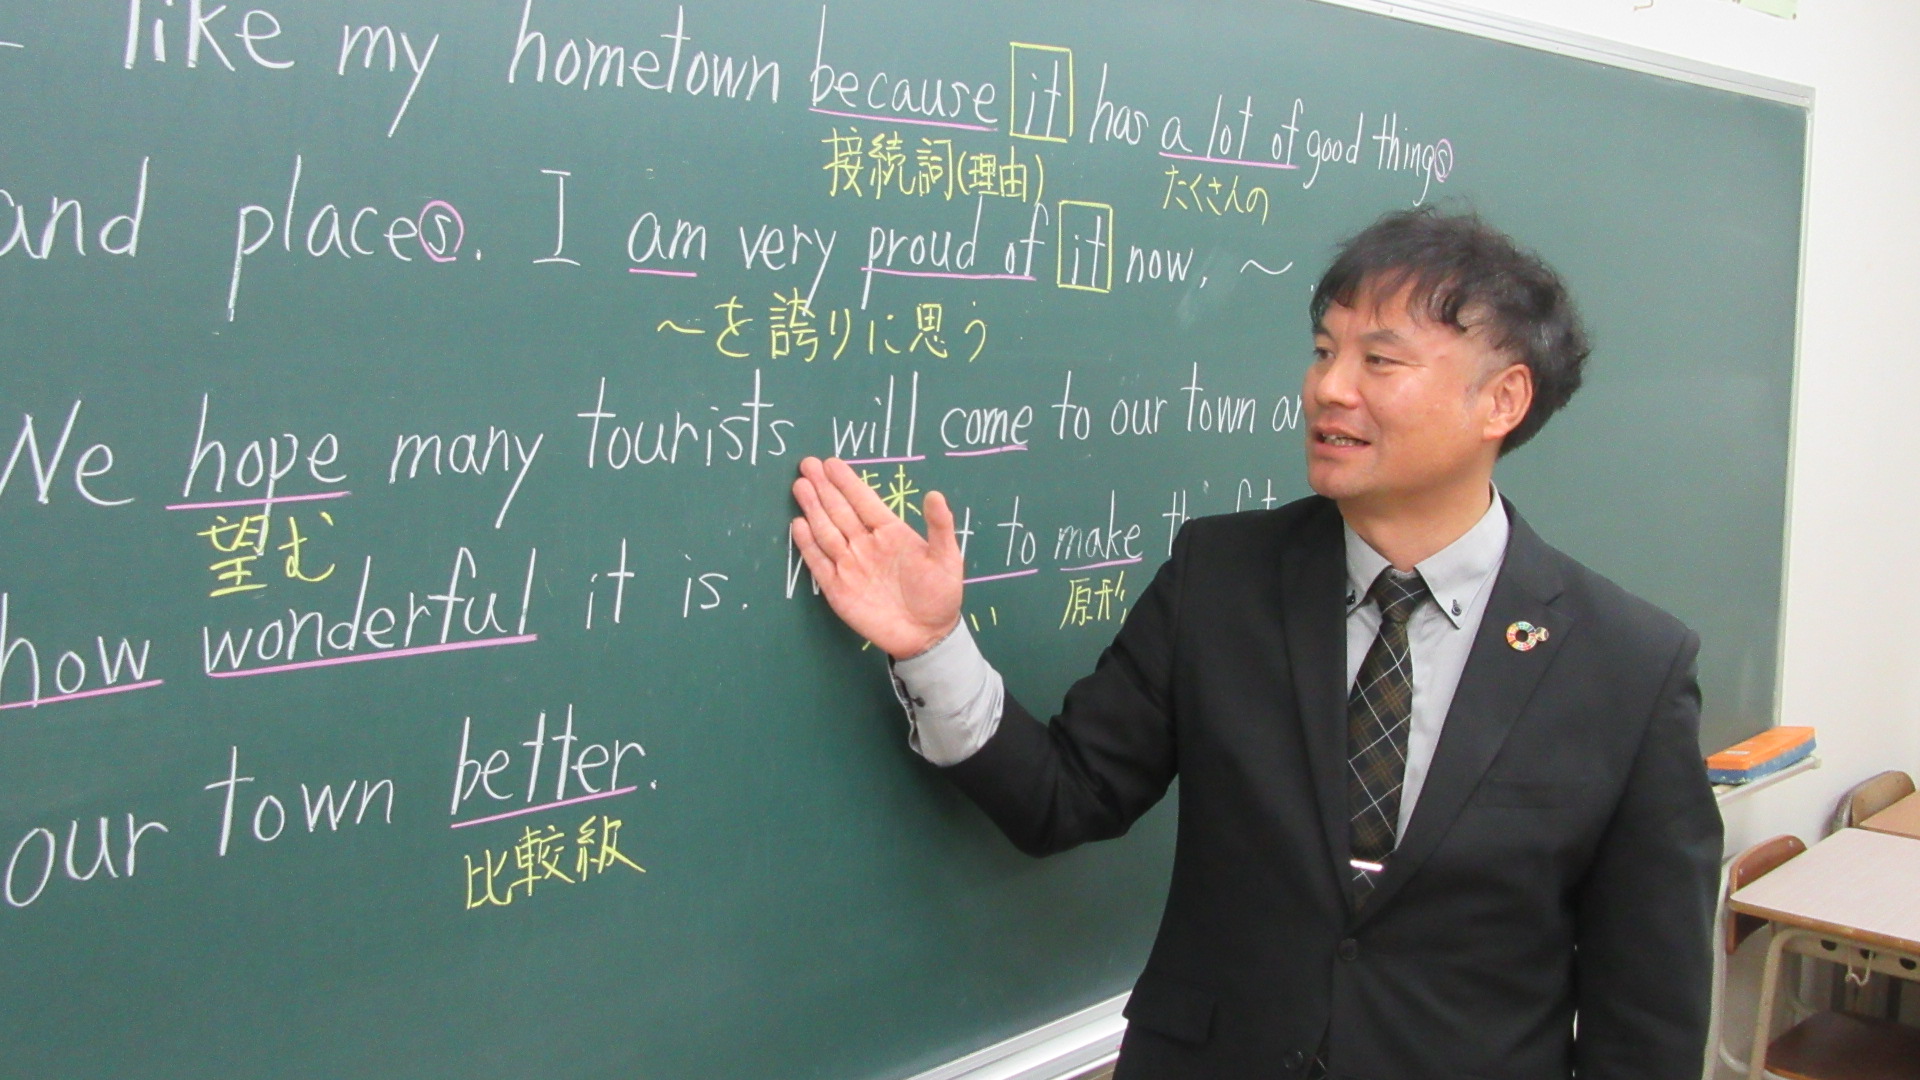 I like my hometown because it has a lot of good things
接続詞(理由) たくさんの
and places. I am very proud of it now, ～.
～を誇りに思う
We hope many tourists will come to our town
望む
how wonderful it is. to make
原形
our town better.
比較級